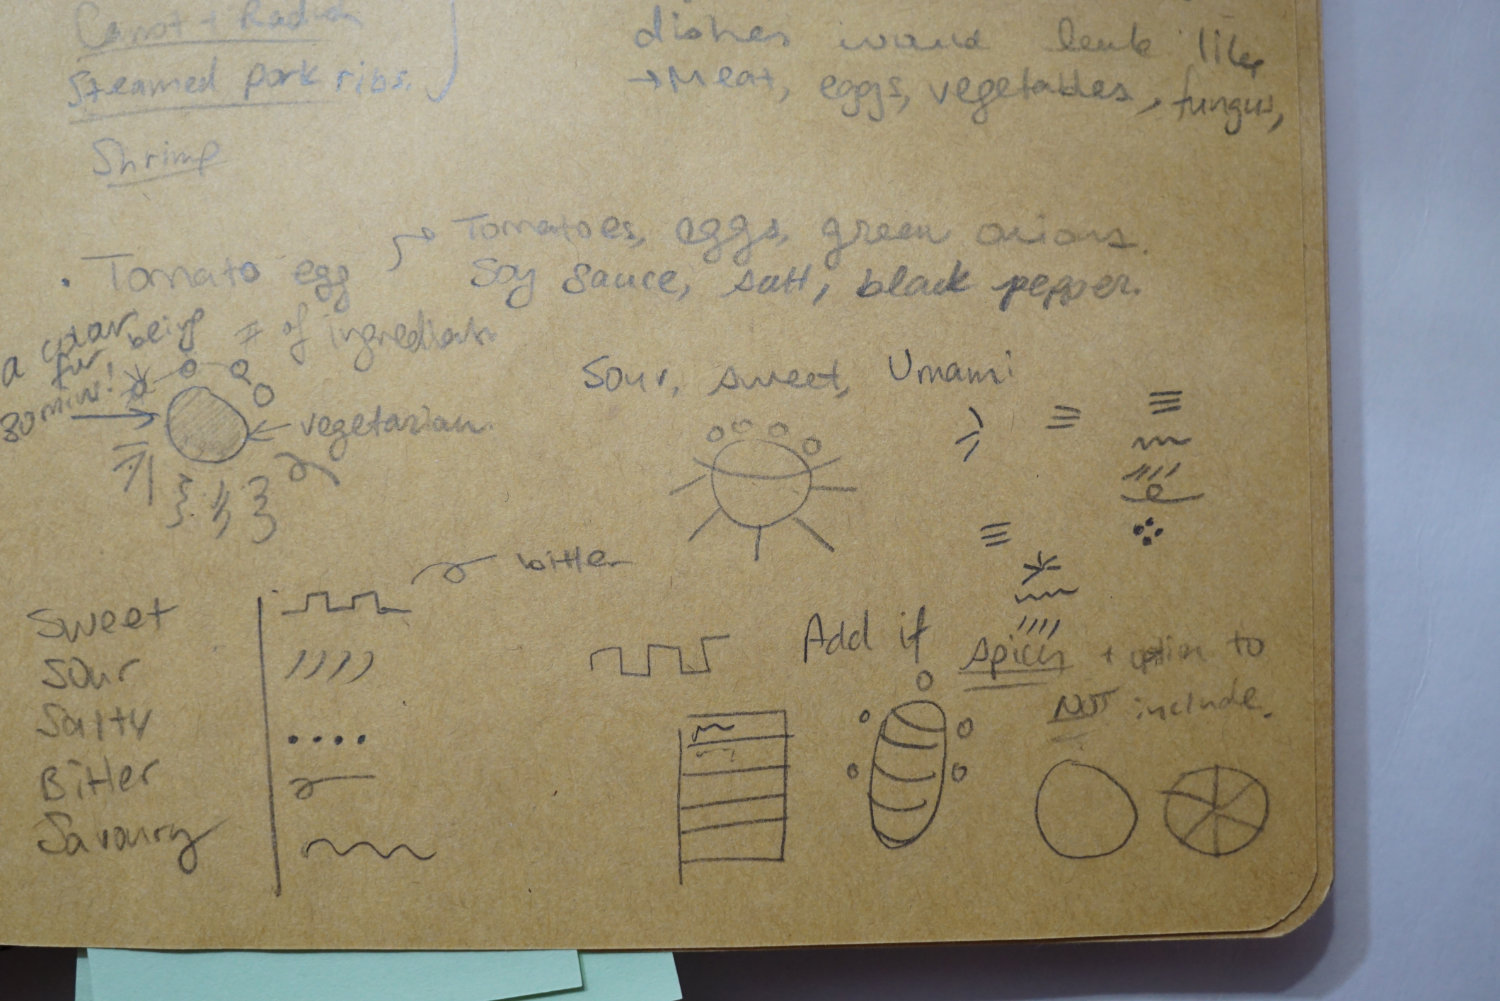 Carrot + Radish
Steamed pork ribs.
Shrimp
dishes would look like
→ Meat, eggs, vegetables, fungus,
· Tomato egg → Tomatoes, eggs, green onions.
Soy sauce, salt, black pepper.
being # of ingredients
a color
for
30 mins!
vegetarian
Sour, sweet, Umami
bitter
Sweet
Sour
Salty
Bitter
Savoury
Add if spicy + option to
NOT include.